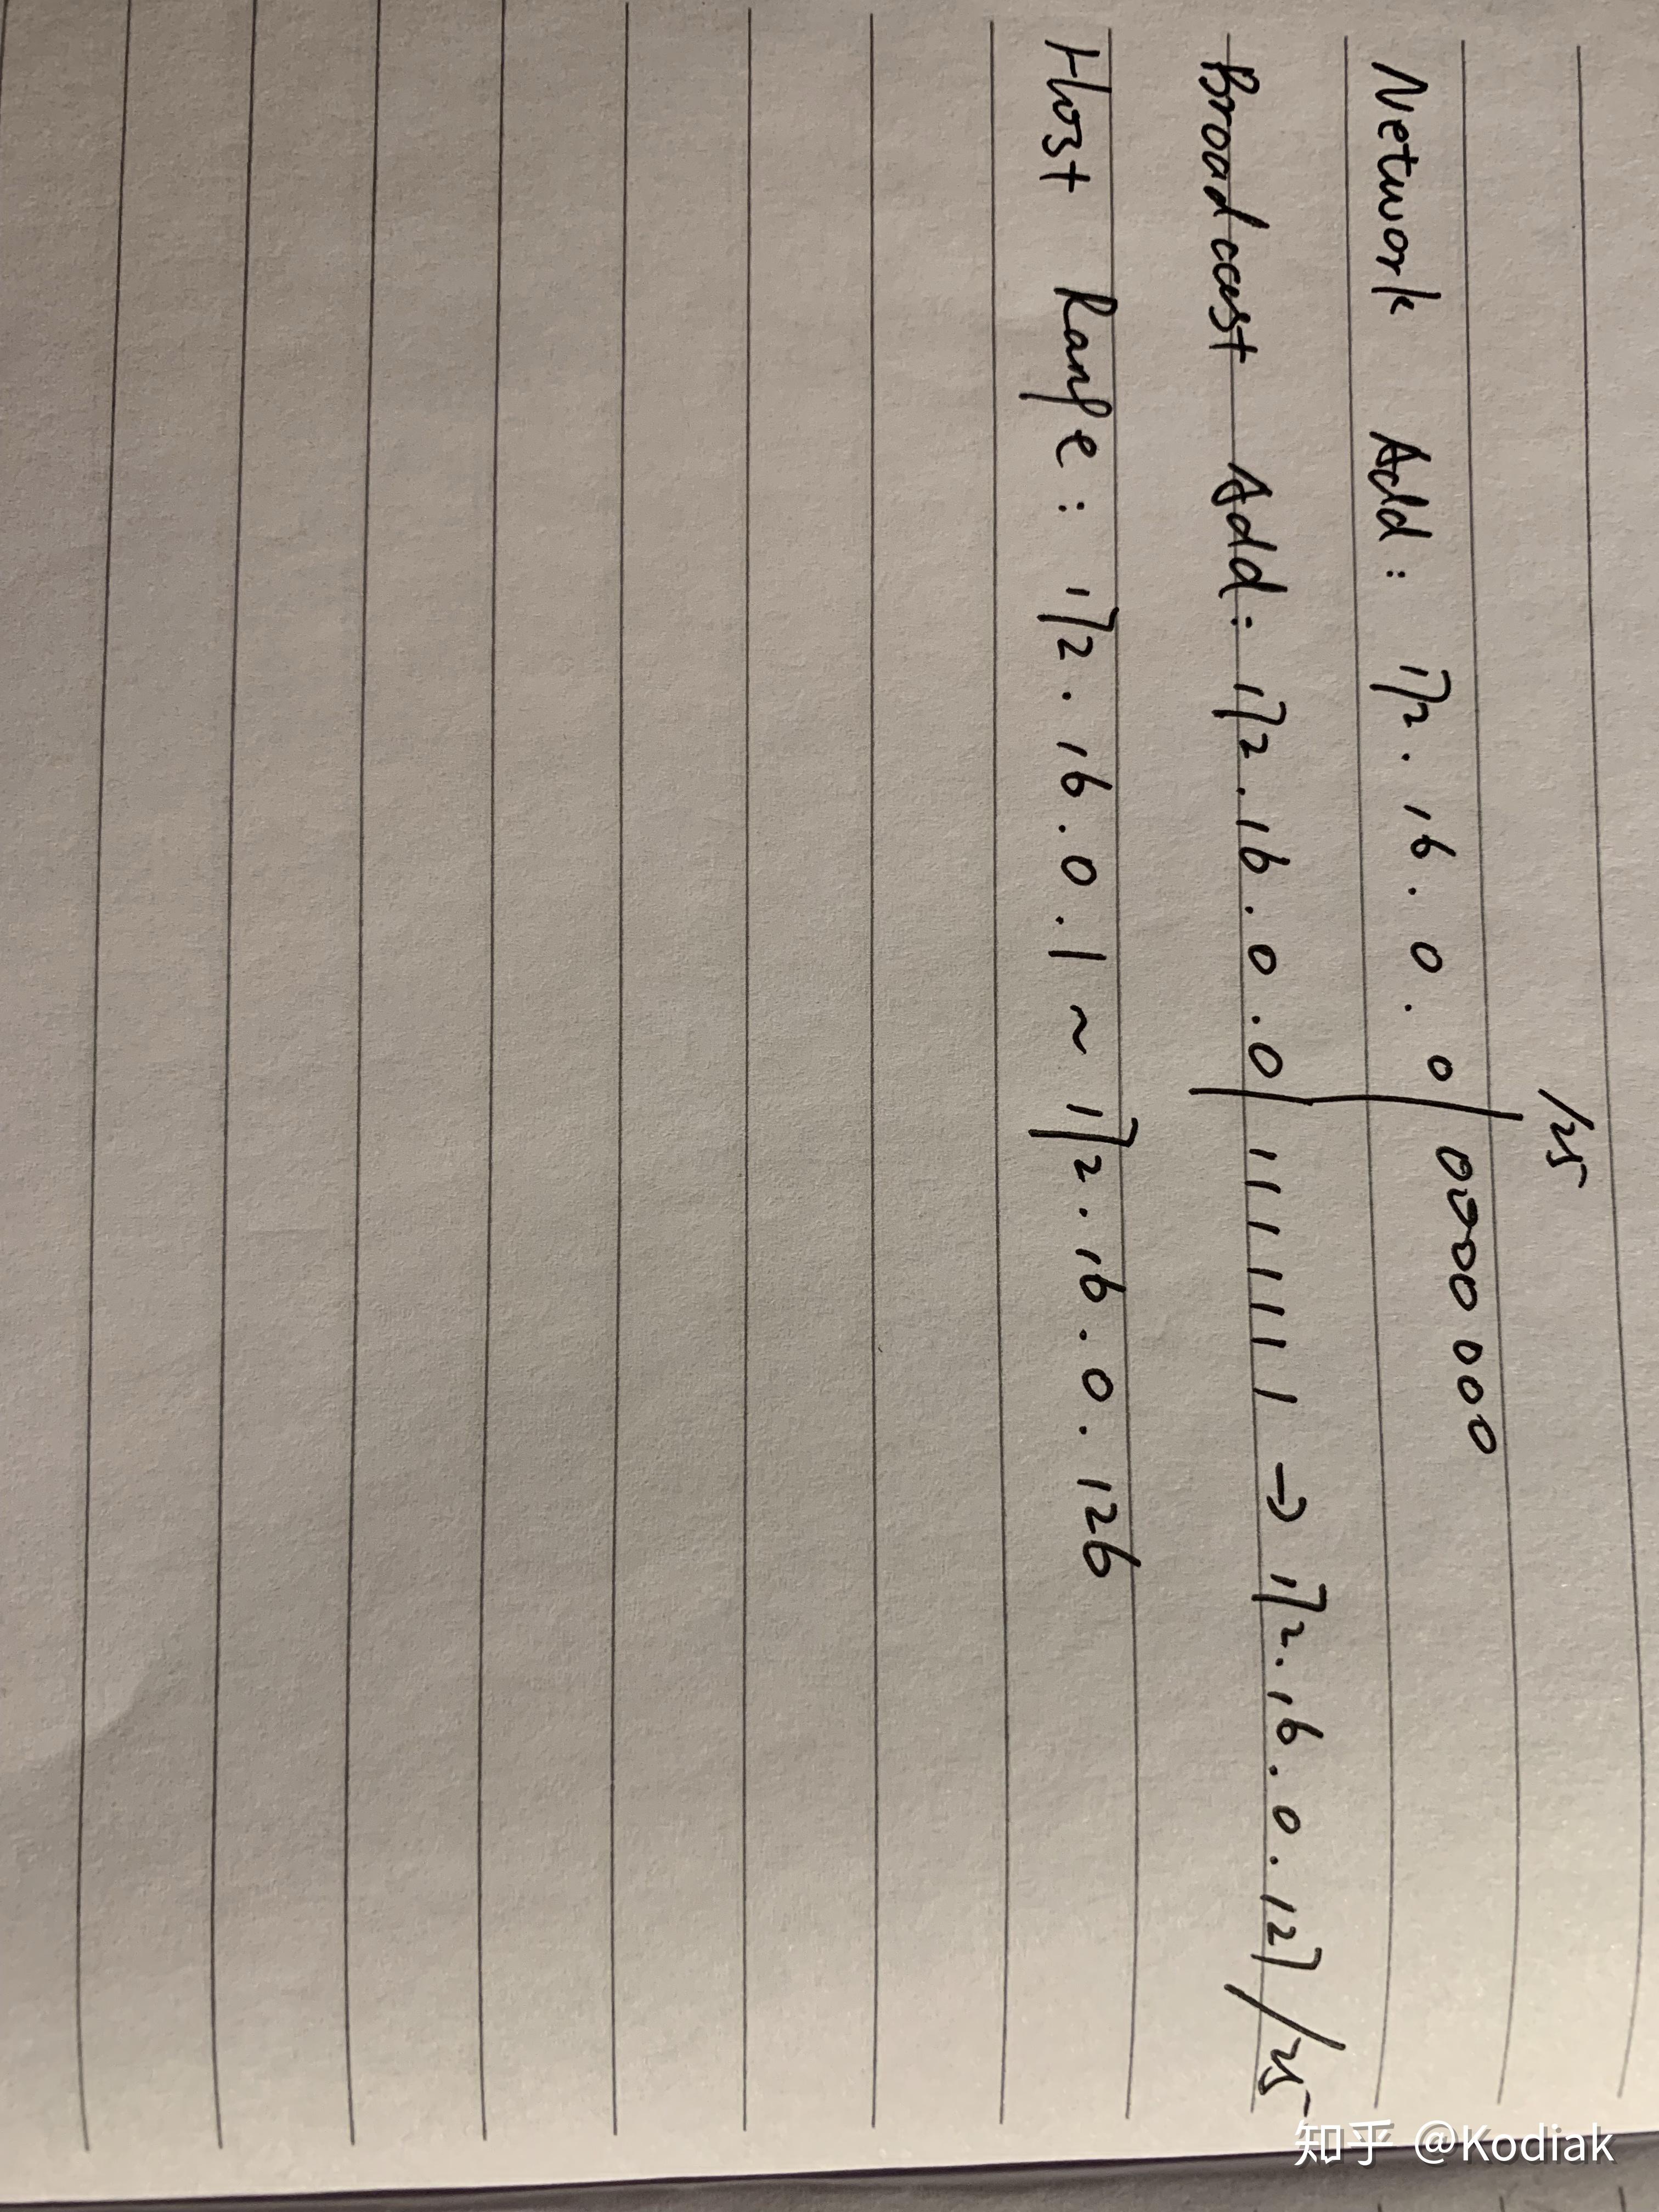 /25
Network Add: 172.16.0.0|0000000
Broadcast Add: 172.16.0.0|1111111 → 172.16.0.127/25
Host Range: 172.16.0.1 ~ 172.16.0.126
知乎 @Kodiak